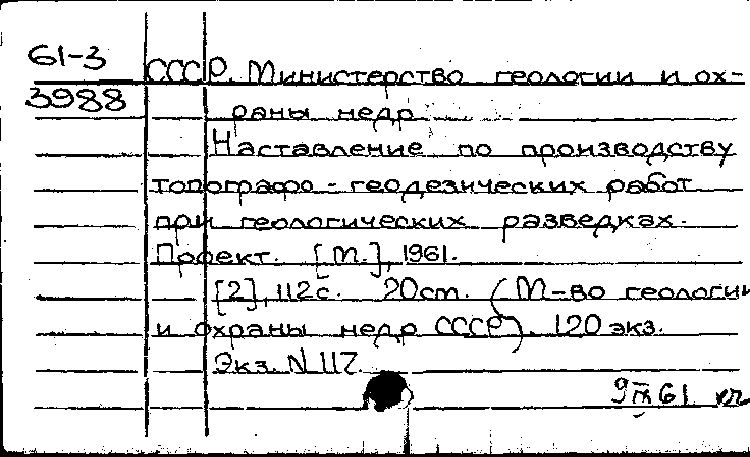 61-3
3988
СССР. Министерство геологии и ох-
раны недр
Наставление по производству
топографо-геодезических работ
при геологических разведках.
Проект. [М.], 1961.
[2], 112 с. 20 cm. (М-во геологии
и охраны недр СССР). 120 экз.
Экз. N 117
9 IX 61